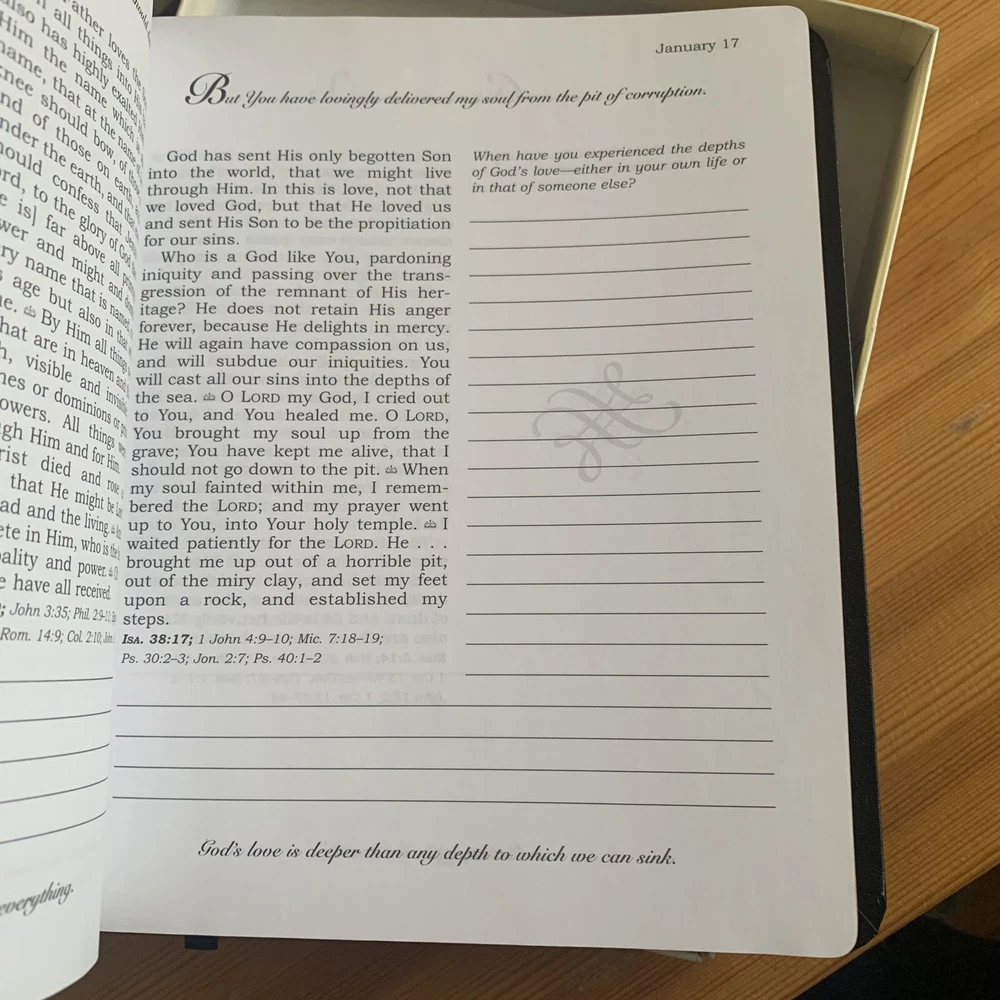 ather loves the
all things into Hi
also has highly exalted
Him the name which is
name, that at the name of
knee should bow, of those
nd of those on earth,
nder the earth, and that
ould confess that Jesus
ord, to the glory of God
e is] far above all
wer and might and
ry name that is named,
s age but also in that
ne. By Him all things
hat are in heaven and
h, visible and invisible
nes or dominions or
owers. All things
gh Him and for Him.
rist died and rose
that He might be
ad and the living.
ete in Him, who is the
pality and power.
e have all received.
John 3:35; Phil. 2:9-11;
Rom. 14:9; Col. 2:10;
everything.
January 17
But You have lovingly delivered my soul from the pit of corruption.
God has sent His only begotten Son
into the world, that we might live
through Him. In this is love, not that
we loved God, but that He loved us
and sent His Son to be the propitiation
for our sins.
Who is a God like You, pardoning
iniquity and passing over the trans-
gression of the remnant of His her-
itage? He does not retain His anger
forever, because He delights in mercy.
He will again have compassion on us,
and will subdue our iniquities. You
will cast all our sins into the depths of
the sea. O LORD my God, I cried out
to You, and You healed me. O LORD,
You brought my soul up from the
grave; You have kept me alive, that I
should not go down to the pit. When
my soul fainted within me, I remem-
bered the LORD; and my prayer went
up to You, into Your holy temple. I
waited patiently for the LORD. He . . .
brought me up out of a horrible pit,
out of the miry clay, and set my feet
upon a rock, and established my
steps.
ISA. 38:17; 1 John 4:9–10; Mic. 7:18–19;
Ps. 30:2–3; Jon. 2:7; Ps. 40:1–2
When have you experienced the depths
of God's love—either in your own life or
in that of someone else?
God's love is deeper than any depth to which we can sink.